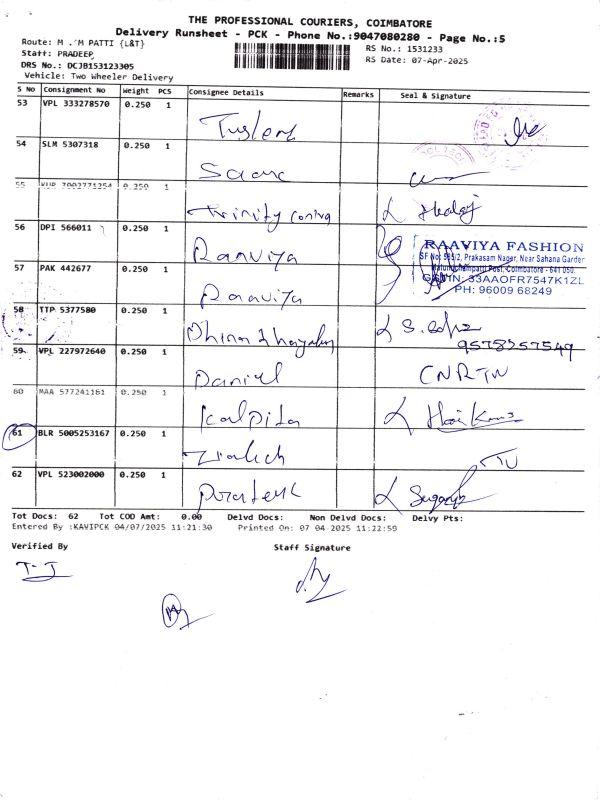 THE PROFESSIONAL COURIERS, COIMBATORE
Delivery Runsheet - PCK - Phone No.:9047080280 - Page No.:5
Route: M .´M PATTI {L&T}
Staff: PRADEEP
DRS No.: DCJB153123305
Vehicle: Two Wheeler Delivery
RS No.: 1531233
RS Date: 07-Apr-2025
S No Consignment No Weight PCS Consignee Details Remarks Seal & Signature
53 VPL 333278570 0.250 1
54 SLM 5307318 0.250 1
55 KUR 7002771254 0.250 1 Trinity
56 DPI 566011 0.250 1 Raaviya
RAAVIYA FASHION
SF No: 565/2, Prakasam Nagar, Near Sahana Garden
Malumichampatti Post, Coimbatore - 641 050.
GSTIN: 33AAOFR7547K1ZL
PH: 96009 68249
57 PAK 442677 0.250 1 Raaviya
58 TTP 5377580 0.250 1
9578257549
59 VPL 227972640 0.250 1 Daniel CNRTW
60 MAA 577241181 0.250 1 Kalpita
61 BLR 5005253167 0.250 1
62 VPL 523002000 0.250 1 Prateek
Tot Docs: 62 Tot COD Amt: 0.00 Delvd Docs: Non Delvd Docs: Delvy Pts:
Entered By :KAVIPCK 04/07/2025 11:21:30 Printed On: 07 04-2025 11:22:59
Verified By Staff Signature